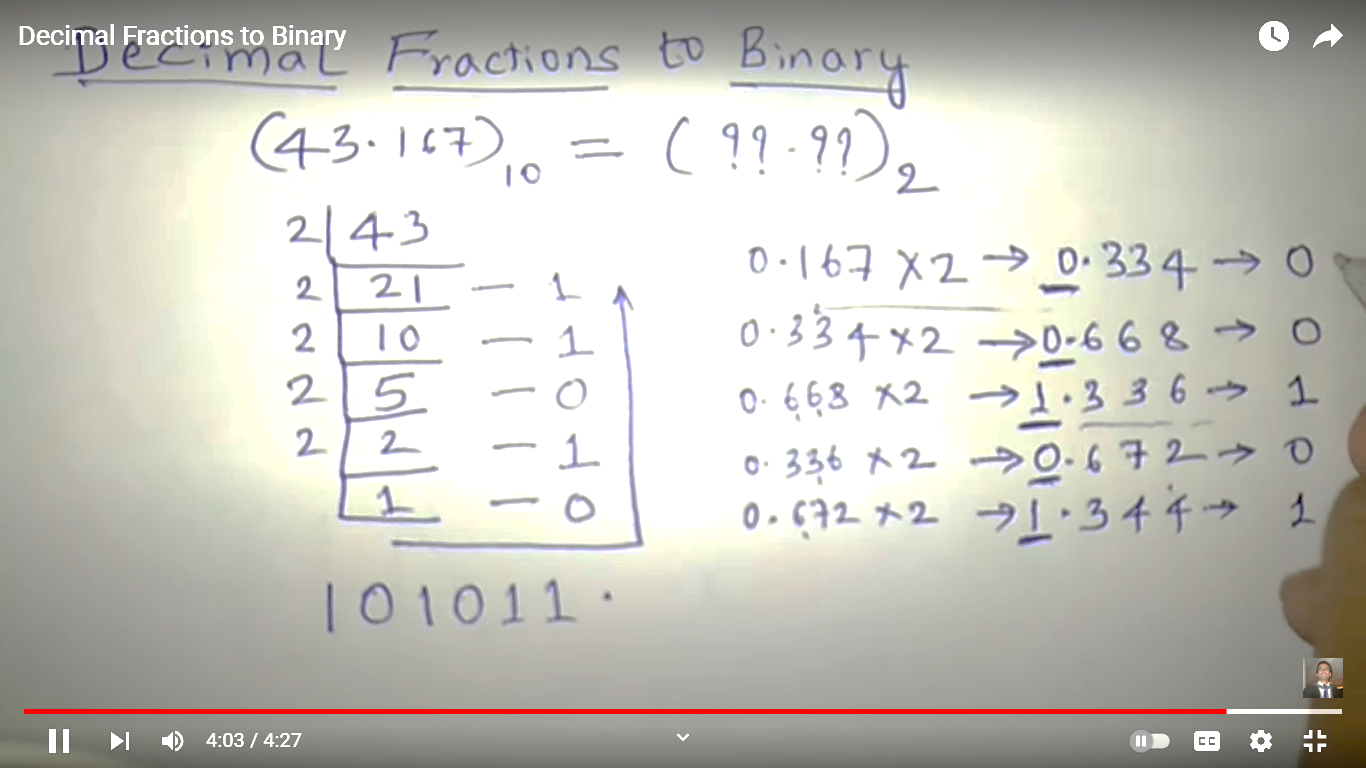 Decimal Fractions to Binary
Decimal Fractions to Binary
(43.167)10 = (??.??)2
2 43
2 21 — 1
2 10 — 1
2 5 — 0
2 2 — 1
1 — 0
101011.
0.167 × 2 → 0.334 → 0
0.334 × 2 → 0.668 → 0
0.668 × 2 → 1.336 → 1
0.336 × 2 → 0.672 → 0
0.672 × 2 → 1.344 → 1
4:03 / 4:27
CC